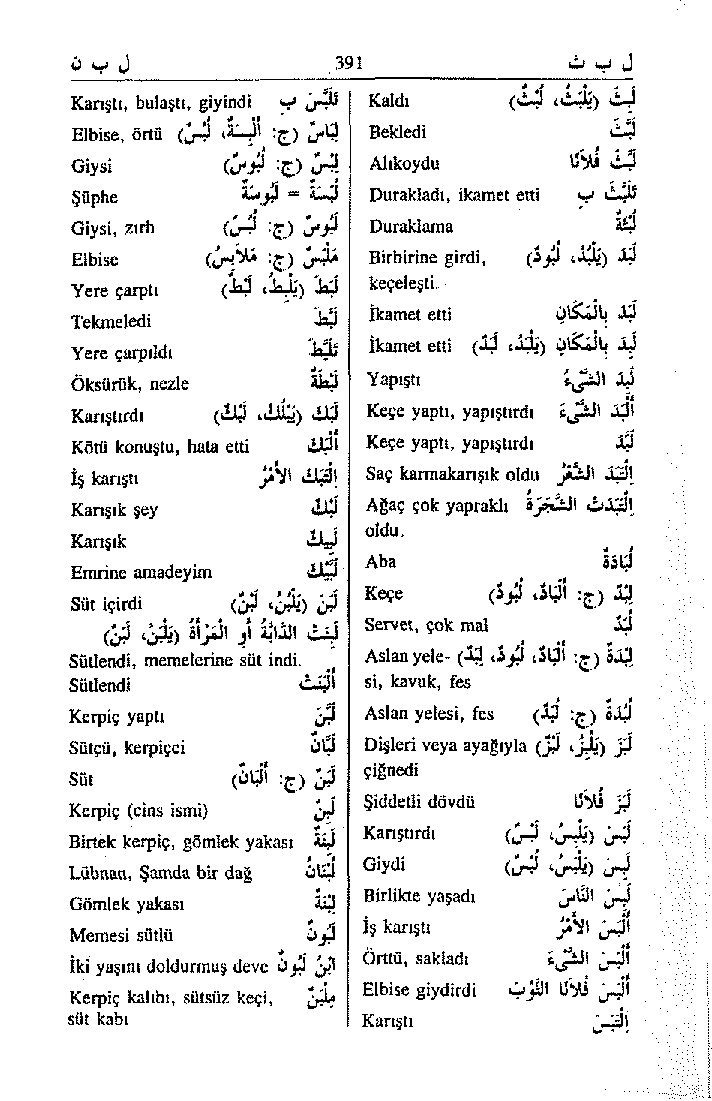 ل ب ث 391 ل ب ن
لَبِثَ (يَلْبَثُ، لَبْثٌ) Kaldı
لَبَّثَ Bekledi
لَبَّثَ فُلَانًا Alıkoydu
تَلَبَّثَ بِ Durakladı, ikamet etti
لُبْثَةٌ Duraklama
لَبَدَ (يَلْبُدُ، لُبُودٌ) Birbirine girdi,
keçeleşti.
لَبَدَ بِالْمَكَانِ İkamet etti
لَبِدَ بِالْمَكَانِ (يَلْبَدُ، لَبَدٌ) İkamet etti
لَبِدَ الشَّيْءُ Yapıştı
أَلْبَدَ الشَّيْءَ Keçe yaptı, yapıştırdı
لَبَّدَ Keçe yaptı, yapıştırdı
اِلْتَبَدَ الشَّعْرُ Saç karmakarışık oldu
اِلْتَبَدَتْ الشَّجَرَةُ Ağaç çok yapraklı
oldu.
لُبَّادَةٌ Aba
لِبْدٌ (ج: أَلْبَادٌ، لُبُودٌ) Keçe
لُبَدٌ Servet, çok mal
لِبْدَةٌ (ج: أَلْبَادٌ، لُبُودٌ، لِبَدٌ) Aslan yele-
si, kavuk, fes
لُبْدَةٌ (ج: لُبَدٌ) Aslan yelesi, fes
لَبَزَ (يَلْبِزُ، لَبْزٌ) Dişleri veya ayağıyla
çiğnedi
لَبَزَ فُلَانًا Şiddetli dövdü
لَبَسَ (يَلْبِسُ، لَبْسٌ) Karıştırdı
لَبِسَ (يَلْبَسُ، لُبْسٌ) Giydi
لَبِسَ النَّاسَ Birlikte yaşadı
أَلْبَسَ الْأَمْرُ İş karıştı
أَلْبَسَ الشَّيْءَ Örttü, sakladı
أَلْبَسَ فُلَانًا الثَّوْبَ Elbise giydirdi
اِلْتَبَسَ Karıştı
تَلَبَّسَ بِ Karıştı, bulaştı, giyindi
لِبَاسٌ (ج: أَلْبِسَةٌ، لُبُسٌ) Elbise, örtü
لِبْسٌ (ج: لُبُوسٌ) Giysi
لُبْسَةٌ = لَبُوسَةٌ Şüphe
لَبُوسٌ (ج: لُبُسٌ) Giysi, zırh
مَلْبَسٌ (ج: مَلَابِسُ) Elbise
لَبَطَ (يَلْبِطُ، لَبْطٌ) Yere çarptı
لَبَطَ Tekmeledi
تَلَبَّطَ Yere çarpıldı
لَبْطَةٌ Öksürük, nezle
لَبَكَ (يَلْبُكُ، لَبْكٌ) Karıştırdı
أَلْبَكَ Kötü konuştu, hata etti
اِلْتَبَكَ الْأَمْرُ İş karıştı
لَبْكٌ Karışık şey
لَبِيكٌ Karışık
لَبَّيْكَ Emrine amadeyim
لَبَنَ (يَلْبُنُ، لَبْنٌ) Süt içirdi
لَبِنَتْ الدَّابَّةُ أَوِ الْمَرْأَةُ (يَلْبَنُ، لَبَنٌ)
Sütlendi, memelerine süt indi.
أَلْبَنَتْ Sütlendi
لَبَّنَ Kerpiç yaptı
لَبَّانٌ Sütçü, kerpiçci
لَبَنٌ (ج: أَلْبَانٌ) Süt
لَبِنٌ Kerpiç (cins ismi)
لَبِنَةٌ Birtek kerpiç, gömlek yakası
لُبْنَانُ Lübnan, Şamda bir dağ
لِبْنَةٌ Gömlek yakası
لَبُونٌ Memesi sütlü
اِبْنُ لَبُونٍ İki yaşını doldurmuş deve
مِلْبَنٌ Kerpiç kalıbı, sütsüz keçi,
süt kabı